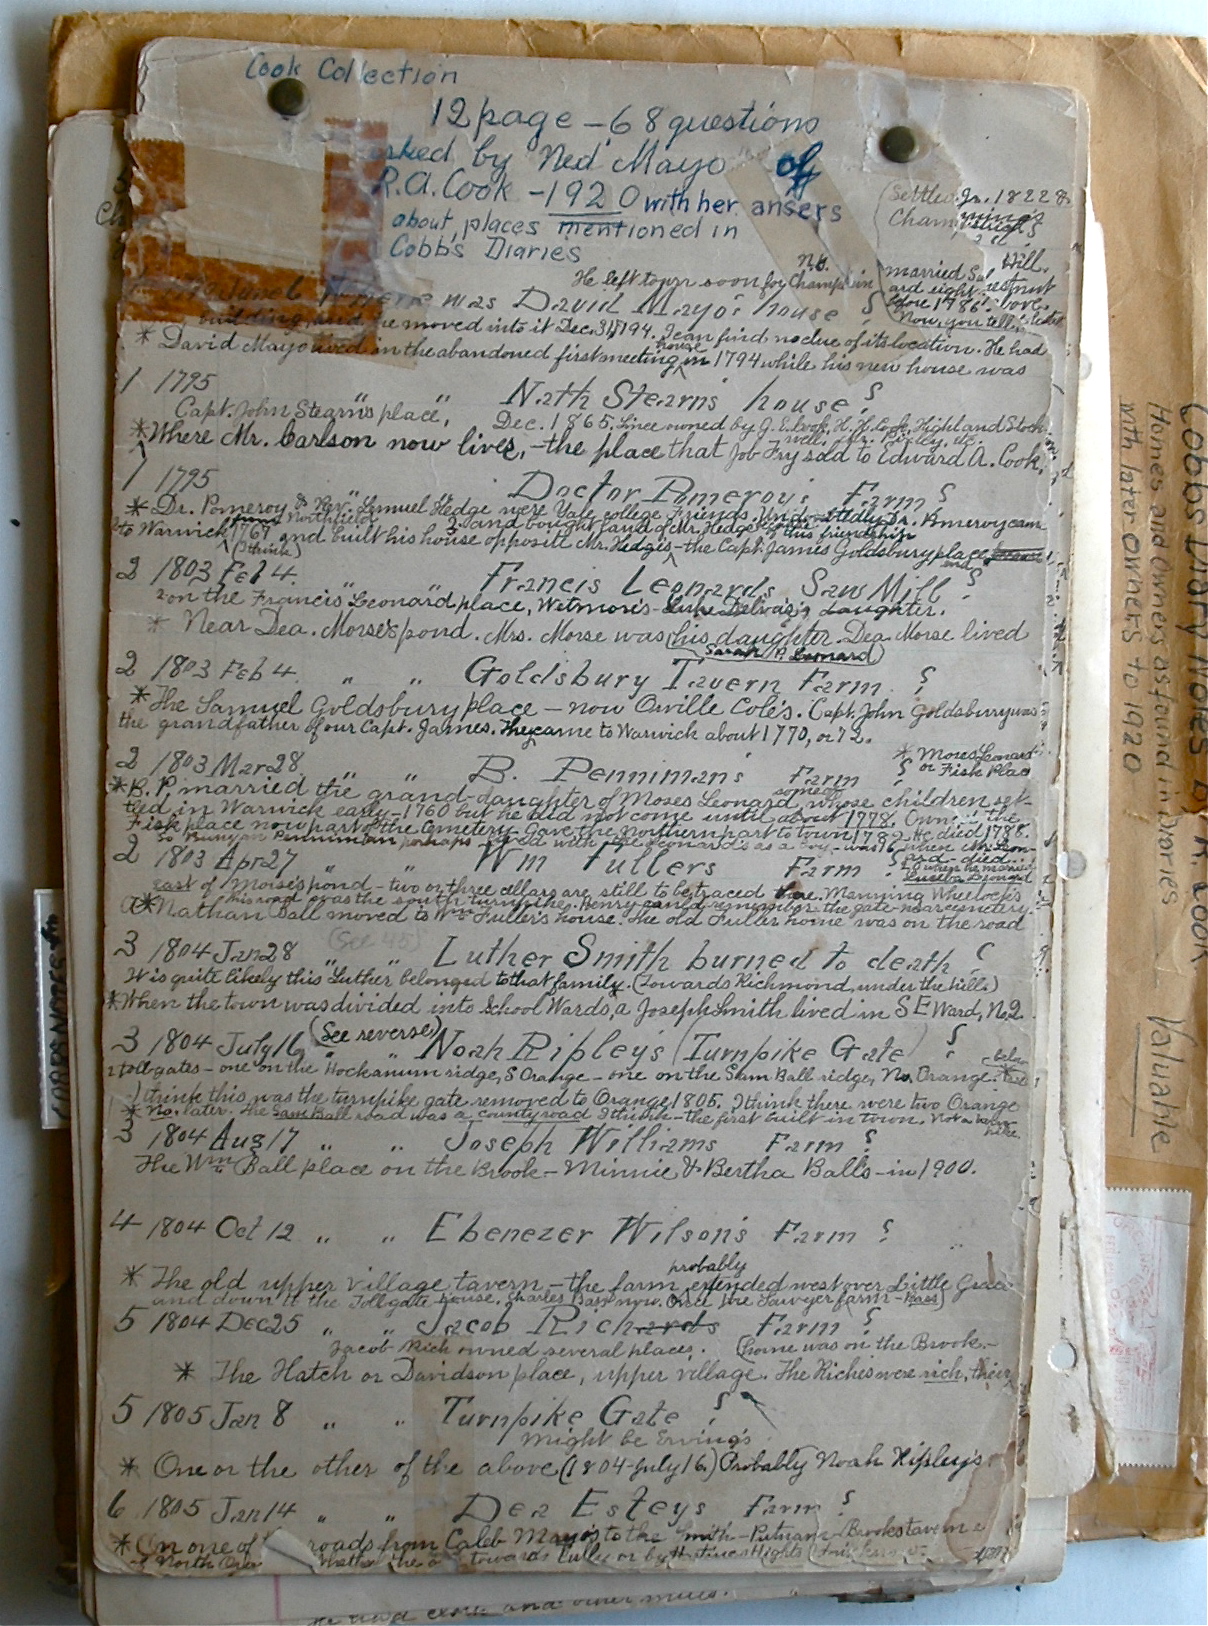 Cook Collection
12 page - 68 questions
asked by Ned Mayo of
R.A. Cook - 1920 with her ansers
about places mentioned in
Cobb's Diaries
(Settled Jr. 1822 &
Hill.
No.
He left town soon for Champlain
married
before 1786. above,
Now, you tell
June 6 Where was David Mayo's house ?
building, and he moved into it Dec. 31, 1794. I can find no clue of its location. He had
* David Mayo lived in the abandoned first meeting house in 1794 while his new house was
1 1795 " " Nath Stearns house ?
Capt. John Stearns place, Dec. 1865. Since owned by J. E. Cook, H. H. Cook, Highland Stock
well, Mr. Bixley, etc.
* Where Mr. Carlson now lives, - the place that Job Fry sold to Edward A. Cook,
1 1795 " Doctor Pomeroy's Farm ?
* Dr. Pomeroy & Rev. Lemuel Hedge were Yale college friends. Undoubtedly Dr. Pomeroy came
to Warwick 1769 and built his house opposite Mr. Hedge's - the Capt. James Goldsbury place
(I think)
2 1803 Feb 4. " " Francis Leonards Saw Mill ?
on the Francis Leonard place, Wetmore's - daughter.
* Near Dea. Morse's pond. Mrs. Morse was his daughter. Dea. Morse lived
(Sarah P. Leonard)
2 1803 Feb 4. " " Goldsbury Tavern Farm ?
* The Samuel Goldsbury place - now Orville Cole's. Capt. John Goldsbury was
the grandfather of our Capt. James. They came to Warwick about 1770, or 72.
2 1803 Mar 28 " " B. Penniman's Farm ? * Moses Leonard
or Fisk Place
* B. P. married the grand-daughter of Moses Leonard, some of whose children set-
tled in Warwick early - 1760 but he did not come until about 1778. Own the
Fisk place now part of the cemetery. Gave the northern part to town 1782. He died 1788.
So Bunyan Penniman perhaps lived with the Leonards as a boy - was 16 when Leon-
ard died.
2 1803 Apr 27 " " Wm Fullers Farm ?
east of Moises pond - two or three cellars are still to be traced there. Manning Wheelock's
this road was the south turnpike. Henry remember the gate near cemetery.
* Nathan Ball moved to Wm Fuller's house. The old Fuller home was on the road
3 1804 Jan 28 (See 45) " " Luther Smith burned to death ?
It is quite likely this Luther belonged to that family. (Towards Richmond, under the hill.)
* When the town was divided into School Wards, a Joseph Smith lived in S E Ward, No. 2.
3 1804 July 16 (See reverse) " " Noah Ripley's (Turnpike Gate) ?
tollgates - one on the Hockanum ridge, S Orange - one on the Sam Ball ridge, No. Orange. * below
I think this was the turnpike gate removed to Orange 1805. I think there were two Orange
* No, later. The Sam Ball road was a county road I think - the first built in town. Not a
pike.
3 1804 Aug 17 " " Joseph Williams Farm ?
The Wm Ball place on the Brook - Minnie & Bertha Balls - in 1900.
4 1804 Oct 12 " " Ebenezer Wilson's Farm ?
probably
* The old upper village tavern - the farm extended west over Little Grace
and down to the Tollgate house. Charles Bass now. Once the Sawyer farm - Bass)
5 1804 Dec 25 " " Jacob Richards Farm ?
Jacob Rich owned several places. (home was on the Brook. -
* The Hatch or Davidson place, upper village. The Riches were rich, their
5 1805 Jan 8 " " Turnpike Gate ?
might be Erving's
* One or the other of the above (1804 - July 16.) Probably Noah Ripley's
6 1805 Jan 14 " " Dea Esteys Farm ?
* On one of roads from Caleb Mayo's to the Smith - Putnam - Brooks tavern
North towards Tully or by Hastings Hights
he had cloth and other mills.
Cobbs Diary Notes by R Cook
Homes and Owners as found in Diaries
with later owners to 1920
Valuable